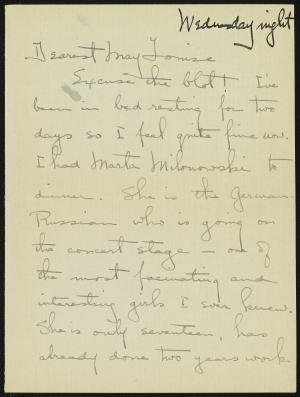 Wednesday night
Dearest May Louise
Excuse the blot! I've
been in bed resting for two
days so I feel quite fine now.
I had Marta Milonowski to
dinner. She is the German-
Russian who is going on
the concert stage – one of
the most facinating and
interesting girls I ever knew.
She is only seventeen, has
already done two years work